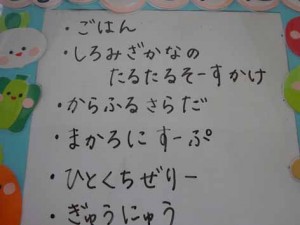 ・ごはん
・しろみざかなの
たるたるそーすかけ
・からふるさらだ
・まかろにすーぷ
・ひとくちぜりー
・ぎゅうにゅう